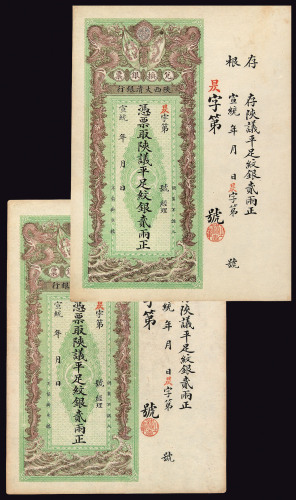 票銀換兌
行銀清大西陝
昃字第 號 經理
憑票取陝議平足紋銀貳兩正
宣統 年 月 日
存根
存陝議平足紋銀貳兩正
宣統 年 月 日昃字第 號
昃字第 號
行銀清大西陝
昃字第 號 經理
憑票取陝議平足紋銀貳兩正
宣統 年 月 日
陝議平足紋銀貳兩正
統 年 月 日昃字第 號
字第 號